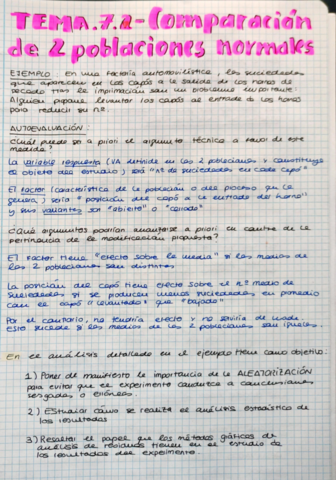 TEMA.7.2-Comparación
de 2 poblaciones normales
EJEMPLO: En una factoría automovilística, las suciedades
que aparecen en los capós a la salida de los hornos de
secado tras la imprimación son un problema importante.
Alguien propone levantar los capós al entrada de los hornos
para reducir su nº.
AUTOEVALUACIÓN:
¿Cuál puede ser a priori el argumento técnico a favor de esta
medida?
La variable respuesta (VA definida en las 2 poblaciones y constituye
el objeto del estudio) será "Nº de suciedades en cada capó"
El factor (característica de la población o del proceso que la
genera) sería "posición del capó a la entrada del horno"
y sus variantes son "abierto" o "cerrado"
¿Qué argumentos podrían aducirse a priori en contra de la
pertinencia de la modificación propuesta?
El factor tiene "efecto sobre la media" si las medias de
las 2 poblaciones son distintas
La posición del capó tiene efecto sobre el nº medio de
suciedades si se producen menos suciedades en promedio
con el capó "levantado" que "bajado"
Por el contrario, no tendría efecto y no serviría de nada.
Esto sucede si las medias de las 2 poblaciones son iguales.
En el análisis detallado en el ejemplo tiene como objetivo:
1) Poner de manifiesto la importancia de la ALEATORIZACIÓN
para evitar que el experimento conduzca a conclusiones
sesgadas o erróneas.
2) Estudiar cómo se realiza el análisis estadístico de
los resultados
3) Resaltar el papel que los métodos gráficos de
análisis de residuos tienen en el estudio de
los resultados del experimento.